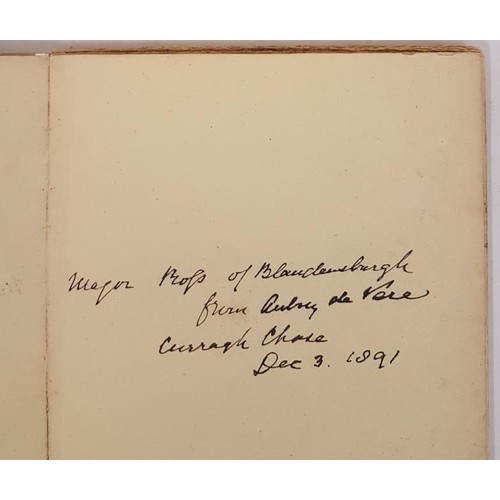 Major Ross of Blandensburgh
from Aubrey de Vere
Curragh Chase
Dec 3. 1891